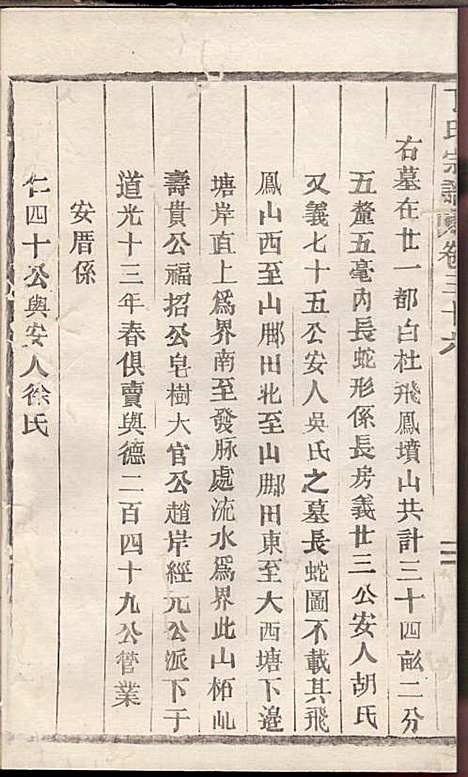 丁氏宗譜卷三十六
右墓在廿一都白杜飛鳳墳山共計三十四畝二分
五釐五毫內長蛇形係長房義廿三公安人胡氏
又義七十五公安人吳氏之墓長蛇圖不載其飛
鳳山西至山腳田北至山腳田東至大西塘下邉
塘岸直上爲界南至發脉處流水爲界此山栢屾
壽貴公福招公皂樹大官公趙岸經元公派下于
道光十三年春俱賣與德二百四十九公管業
安厝係
仁四十公與安人徐氏